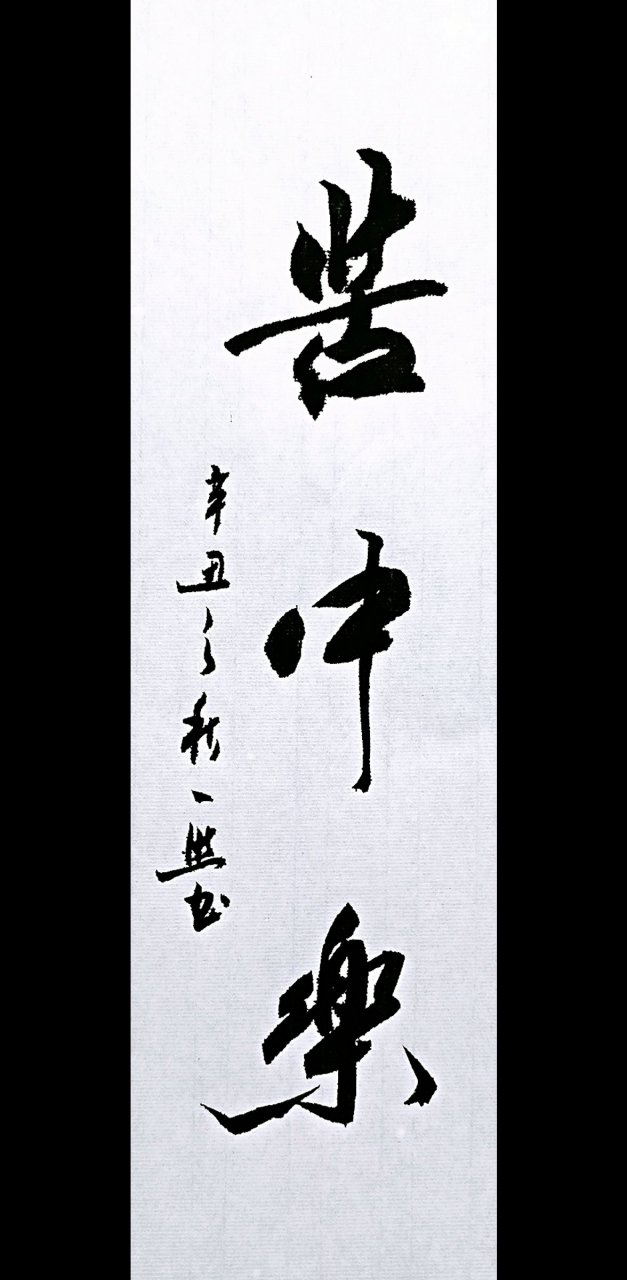 苦中樂
辛丑之秋一 書